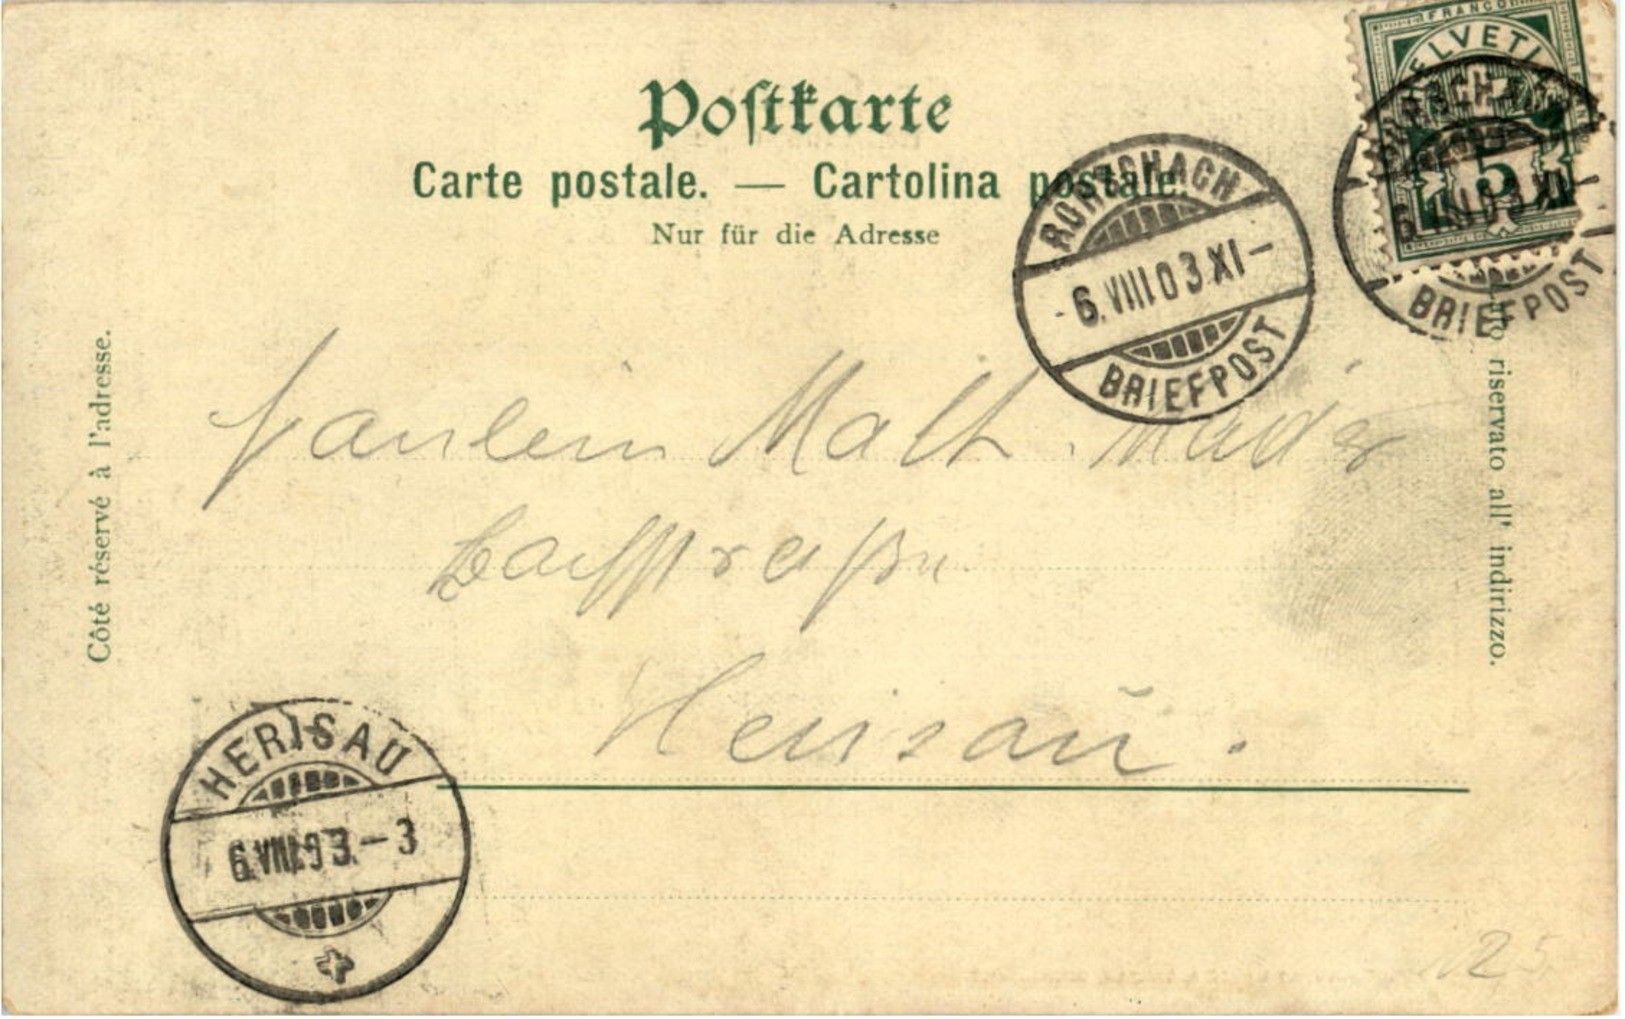 Postkarte
Carte postale. — Cartolina postale.
Nur für die Adresse
FRANCO
HELVETIA
5
BRIEFPOST
RORSCHACH
6.VIII.03.XI-
BRIEFPOST
Côté réservé à l'adresse.
riservato all' indirizzo.
Fräulein Math.
Herisau.
HERISAU
6.VIII.03.-3
25